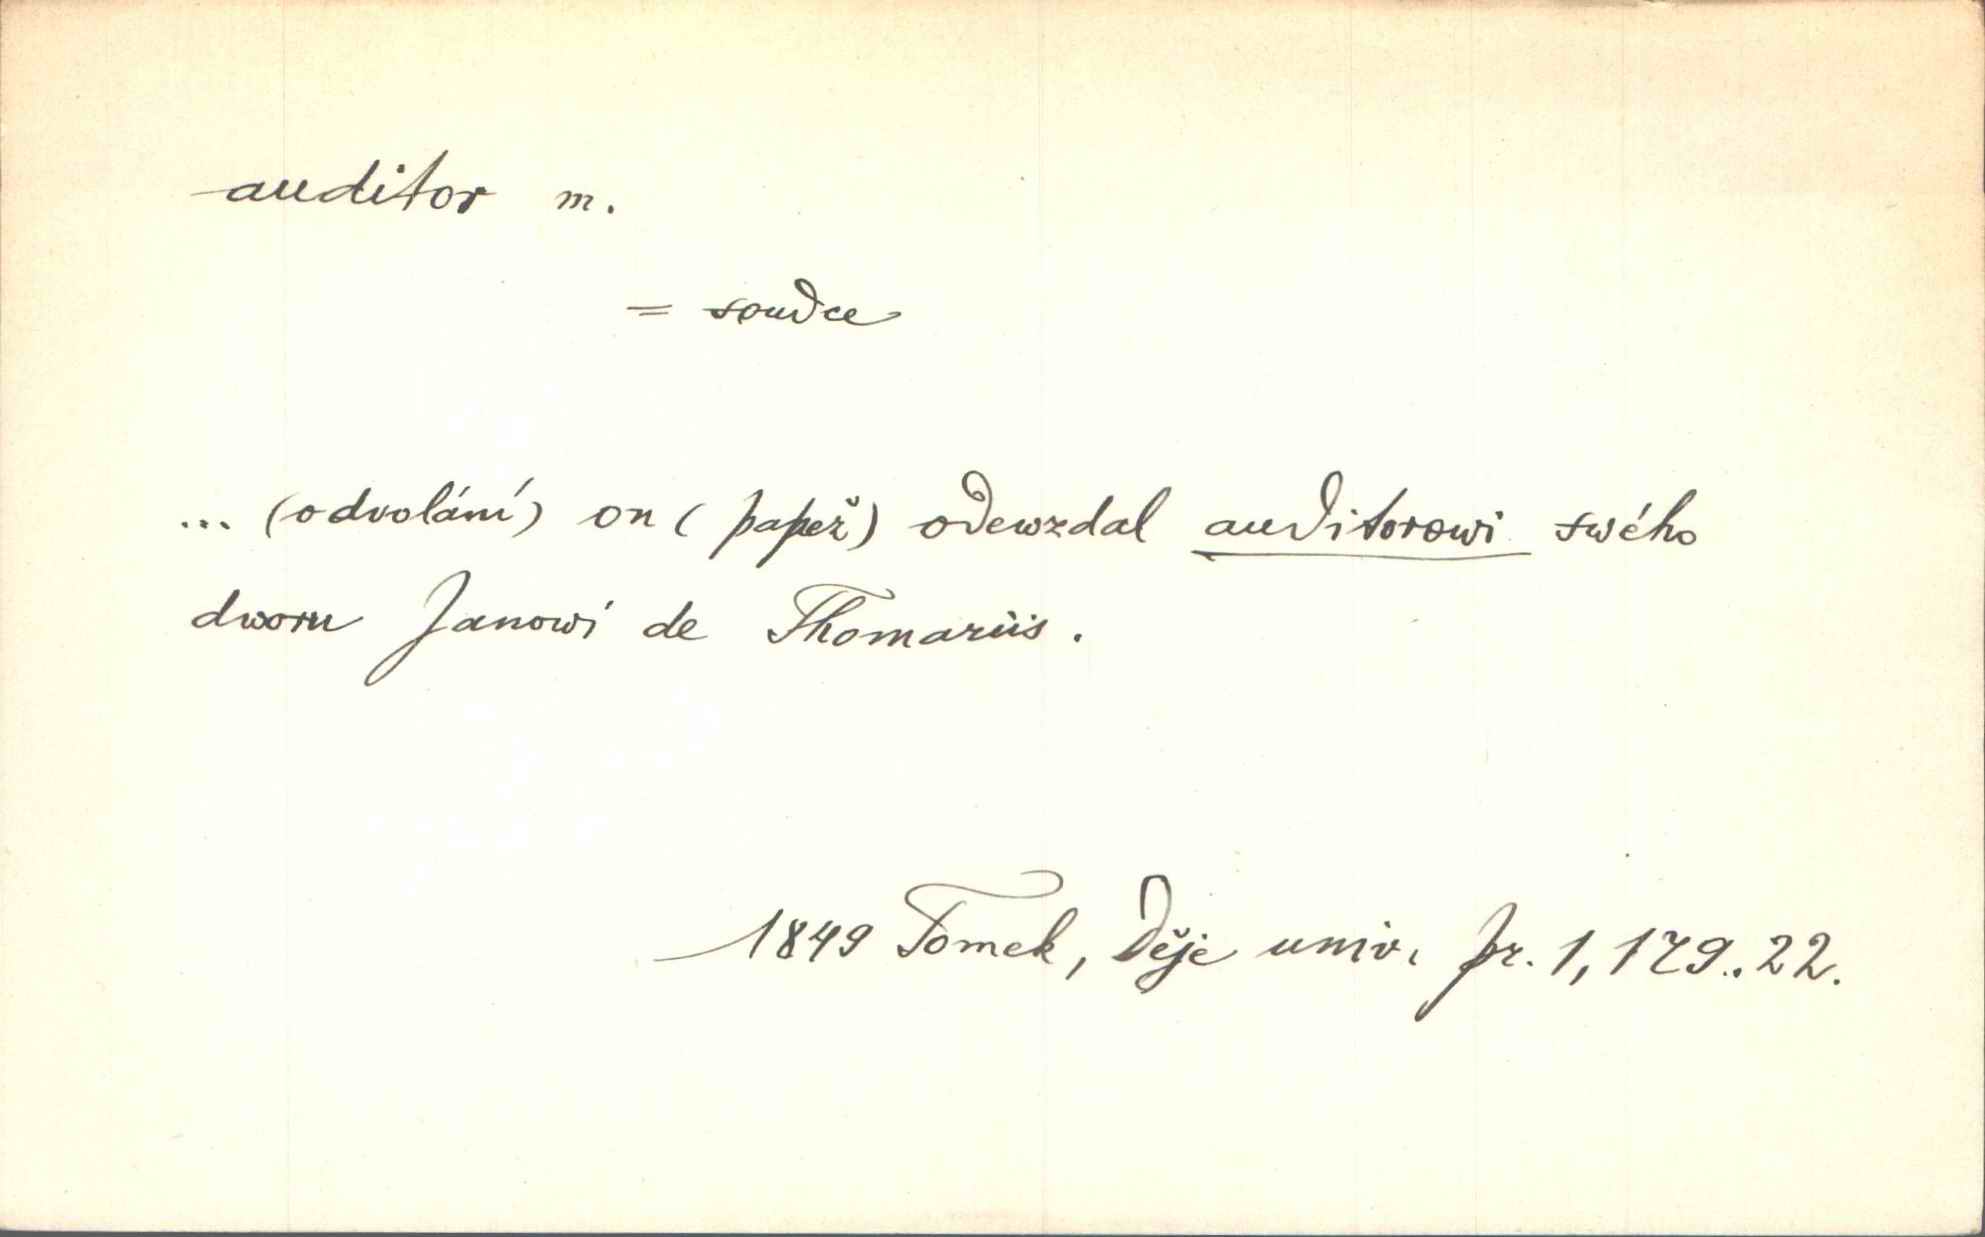 auditor m.
= soudce
... (odvolání) on (papež) odewzdal auditorowi swého
dworu Janowi de Thomariis.
1849 Tomek, Děje univ. pr. 1, 179. 22.